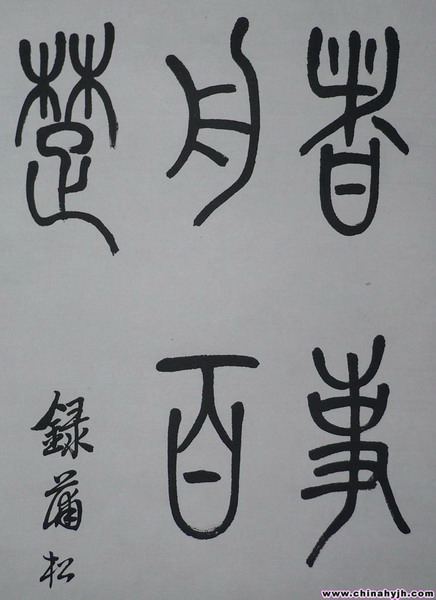 者事
舟百
楚
錄蒲松
www.chinahyjh.com